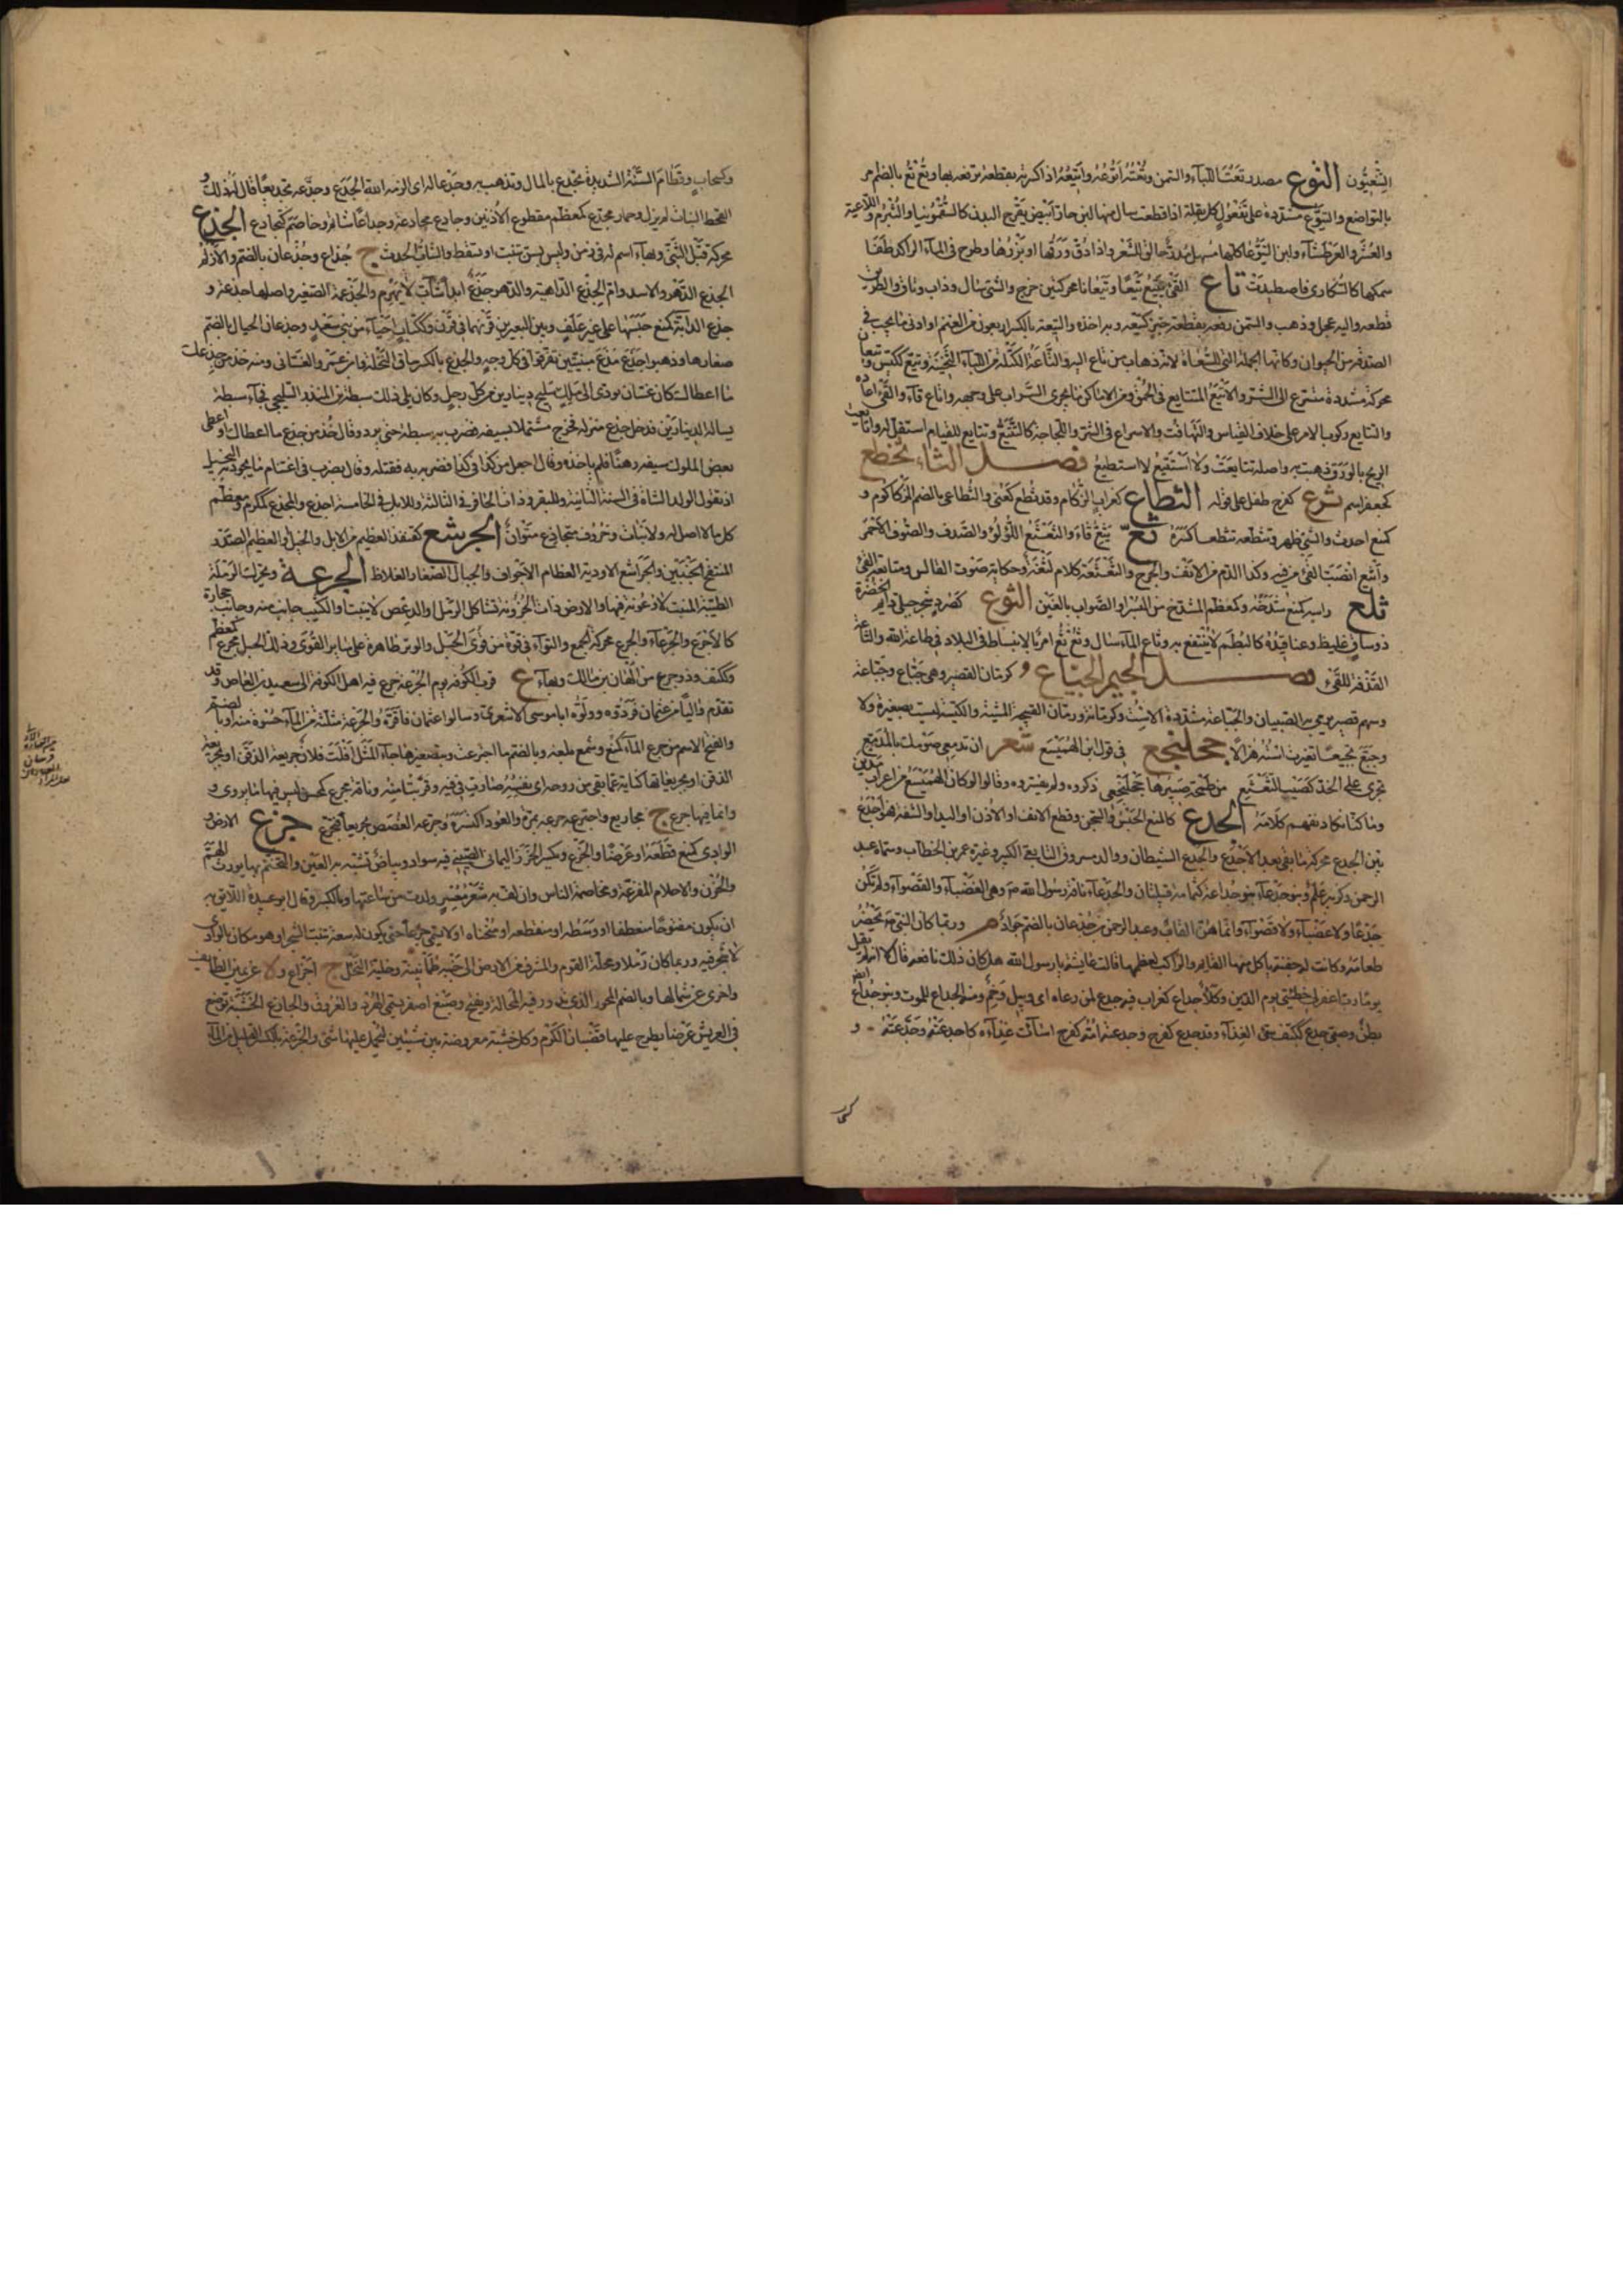 التوع مصدر تعت اللبأ والسمن وتغته اتوعه واتيعه اذا كسرته بقطعة ترفعه بها وتع تع بالضم امر
بالتواضع واليتوع مشددة على تفعول كل بقلة اذا قطعت سال منها لبن حار ابيض يقرح البدن كالسقمونيا والشبرم واللاعية
والعشر والعرطنيثاء ولبن اليتوعات كلها مسهل مدر حالق للشعر واذا دق ورقها او بزرها وطرح في الماء الراكد طفا
سمكها كالسكارى فاصطيدت تاع القئ يتيع تيعا وتيعا نا محركتين خرج والشئ سال وذاب وتاق والطريق
قطعه واليه عجل وذهب والسمن رفعه بقطعة خبز كتيعه وبه اخذه والتيعة بالكسر اربعون من الغنم او ادنى ما يجب في
الصدقة من الحيوان وكانها الجملة التي للسعاة
محركة مشددة متسرع الى الشر والاتيع المتتايع في الحمق ومن الاماكن ما يجرى السراب على وجهه واتاع قاء والقئ اعاده
والتتايع ركوب الامر على خلاف القياس والتهافت والاسراع في الشر واللجاجة كالتتيع وتتايع للقيام استقل له واتايعت
الريح بالورق ذهبت به واصله تتايعت ولا استتيع لا استطيع فصل الثاء ثخطع
كجعفر اسم ثرع كفرح طفل على قوله الثطاع كغراب الزكام وقد ثطع كعنى والثطاعى بالضم المزكوم و
كمنع احدث والشئ ظهر وثطعه تثطعا كسره ثع يثع قاء والثعثع اللؤلؤ والصدف والصوف الاحمر
وانثع انصب القئ من فيه وكذا الدم من الانف والجرح والثعثعة كلام لثغة وحكاية صوت القالس ومتابعة القئ
ثلع راسه كمنع شدخه وكمعظم المشدخ من البسر او الصواب بالغين الثوع كصرد شجر جبلى دايم الخضرة
ذو ساق غليظ وعناقيده كالبطم لا ينتفع به وثاع الماء سال وثع ثع امر بالانبساط في البلاد في طاعة الله والثاعة
القذفة للقئ فصل الجيم الجباع كرمان القصير وهى جباع وجباعة
وسهم قصير يرمى به الصبيان والجباعة مشددة الاست وكرمانة ورمان القبيحة المشية واللبسة ليست بصغيرة ولا
وجبع تجبيعا تغيرت استه هزالا جحلنجع في قول ابى الهميسع شعر ان تمنعى صوبك صوب المدمع
تجرى على الخد كضئب الثعثع من طمحة صبيرها جحلنجع ذكروه ولم يفسروه وقالوا كان ابو الهميسع من اعراب مدين
وما كنا نكاد نفهم كلامه الجدع كالمنع الحبس والسجن وقطع الانف او الاذن او اليد او الشفة هو اجدع
بين الجدع محركة ما بقى بعد الاجدع والجدع الشيطان ووالد مسروق التابعى الكبير وغيره عمر بن الخطاب وسماه عبد
الرحمن وكزبير علم وبنو جدعاء وبنو جداعة كثمامة قبيلتان والجدعاء ناقة رسول الله صم وهى العضباء والقصواء ولم تكن
جدعا ولا عضباء ولا قصواء وانما هن القاب وعبد الرحمن بن جدعان بالضم جواد م وربما كان النبى صم يحضر
طعامه وكانت له جفنة ياكل منها القايم والراكب لعظمها قالت عايشة يا رسول الله هل كان ذلك نافعه قال لا انه لم يقل
يوما رب اغفر لى خطيئتى يوم الدين وكلأ جداع كغراب فيه جدع لمن رعاه اى وبيل وخم ومنه الجداع للموت وبنو جداع ايضا
بطن وصبى جدع ككتف سيئ الغذاء وقد جدع كفرح وجدعته امه كفرح اساءت غذاءه كاجدعته وجدعته و
كسحاب
وكسحاب وقطام السنة الشديدة تجدع بالمال وتذهب به وجدعا له اى الزمه الله الجدع وجدعه تجديعا قال له ذلك و
القحط النبات لم يزل وحمار مجدع كمعظم مقطوع الاذنين وجادع مجادعة وجداعا شاتم وخاصم كتجادع الجذع
محركة قبل الثنى وبهاء اسم له في زمن وليس بسن تنبت او تسقط والشاب الحدث ج جذاع وجذعان بالضم والازلم
الجذع الدهر والاسد وام الجذع الداهية والدهر جذع ابدا شاب لا يهرم والجذعمة الصغير واصلها جذعة و
جذع الدابة كمنع حبسها على غير علف وبين البعيرين قرنهما في قرن وككتاب احياء من بنى سعد وجذعان الجبال بالضم
صغارها وذهبوا جذع مذع مبنيتين تفرقوا في كل وجه والجذع بالكسر ساق النخلة وابن عمرو الغسانى ومنه خذ من جذع
ما اعطاك كان غسان تودى الى ملك سليح دينارين من كل رجل وكان يلى ذلك سبطة بن المنذر السليحى فجاء سبطة
يساله الدينارين فدخل جذع منزله فخرج مشتملا بسيفه فضرب به سبطة حتى برد وقال خذ من جذع ما اعطاك او اعطى
بعض الملوك سيفه رهنا فلم ياخذه وقال اجعل من كذا في كذا فضربه به فقتله وقال يضرب في اغتنام ما يجود به البخيل
اذ تقول لولد الشاة في السنة الثانية وللبقر وذات الحافر في الثالثة وللابل في الخامسة اجذع والمجذع كمكرم ومعظم
كل ما لا اصل له ولا ثبات وخروف متجاذع متوان الجرشع كقنفذ العظيم من الابل والخيل او العظيم الصدر
المنتفخ الجنبين والجراشع الاودية العظام الاجواف والجبال الصغار الغلاظ الجرعة ويحرك الرملة
الطيبة المنبت لا وعوثة فيها او الارض ذات الحزونة تشاكل الرمل او الدعص لا ينبت او الكثيب جانب منه وجانب حجارة
كالاجرع والجرعاء والجرع محركة الجمع والتواء في قوة من قوى الحبل والوتر ظاهرة على ساير القوى وذلك الحبل مجرع كمعظم
وككتف وذو جرع من الهان بن مالك وبهاء ع قرب الكوفة يوم الجرعة خرج فيه اهل الكوفة الى سعيد بن العاص وقد
تقدم واليا من عثمان فردوه وولوه ابا موسى الاشعرى وسالوا عثمان فاقره والجرعة مثلثة من الماء حسوة منه او بالضم
والفتح الاسم من جرع الماء كمنع وسمع بلعه وبالضم ما اجترعت وبتصغيرها جاء المثل افلت فلان جريعة الذقن او بجريعة
الذقن او بجريعائها كناية عما بقى من روحه اى نفسه صارت في فيه وقربت منه وناقة مجرع كمحسن ليس فيها ما يروى و
وانما فيها جرع ج مجاريع واجترعه جرعه بمرة والعود اكتسره وجرعه الغصص تجريعا فتجرع جزع الارض و
الوادى كمنع قطعه او عرضا والجزع ويكسر الخرز اليمانى الصينى فيه سواد وبياض تشبه به العين والتختم بها يورث الهم
والحزن والاحلام المفزعة ومخاصمة الناس وان لف به شعر معسر ولدت من ساعتها وبالكسر وقال ابو عبيدة اللائق به
ان يكون مفتوحا منعطفا او وسطه او منقطعه او منحناه او لا يسمى جزعا حتى يكون له سعة تنبت الشجر او هو مكان بالوادى
لا شجر فيه وربما كان رملا ومحلة القوم والمشرف من الارض الى جنبه طمانينة وخلية النحل ج اجزاع و لا عن يمين الطايف
واخرى عن شمالها وبالضم المحور الذى تدور فيه المحالة ويفتح وصبغ اصفر يسمى الهرد والعروق والجازع الخشبة توضع
في العريش عرضا يطرح عليها قضبان الكرم وكل خشبة معروضة بين شيئين ليحمل عليها شئ والجزعة بالكسر القليل من الماء